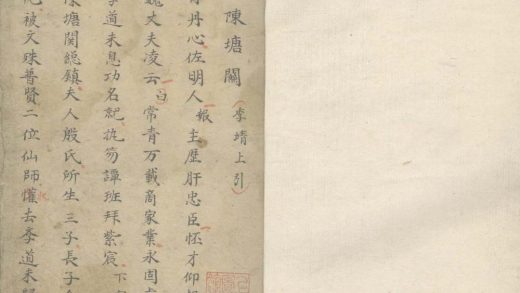 陳塘關（李靖上引）
丹心佐明人 報主歷肝忠臣怌才仰
巍丈夫凌云 白 常青万載商家業永固
道未息功名就执笏譚班拜紫宸 下
陳塘関縂鎮夫人殷氏所生三子長子
被文殊普賢二位仙師懽去孝道未